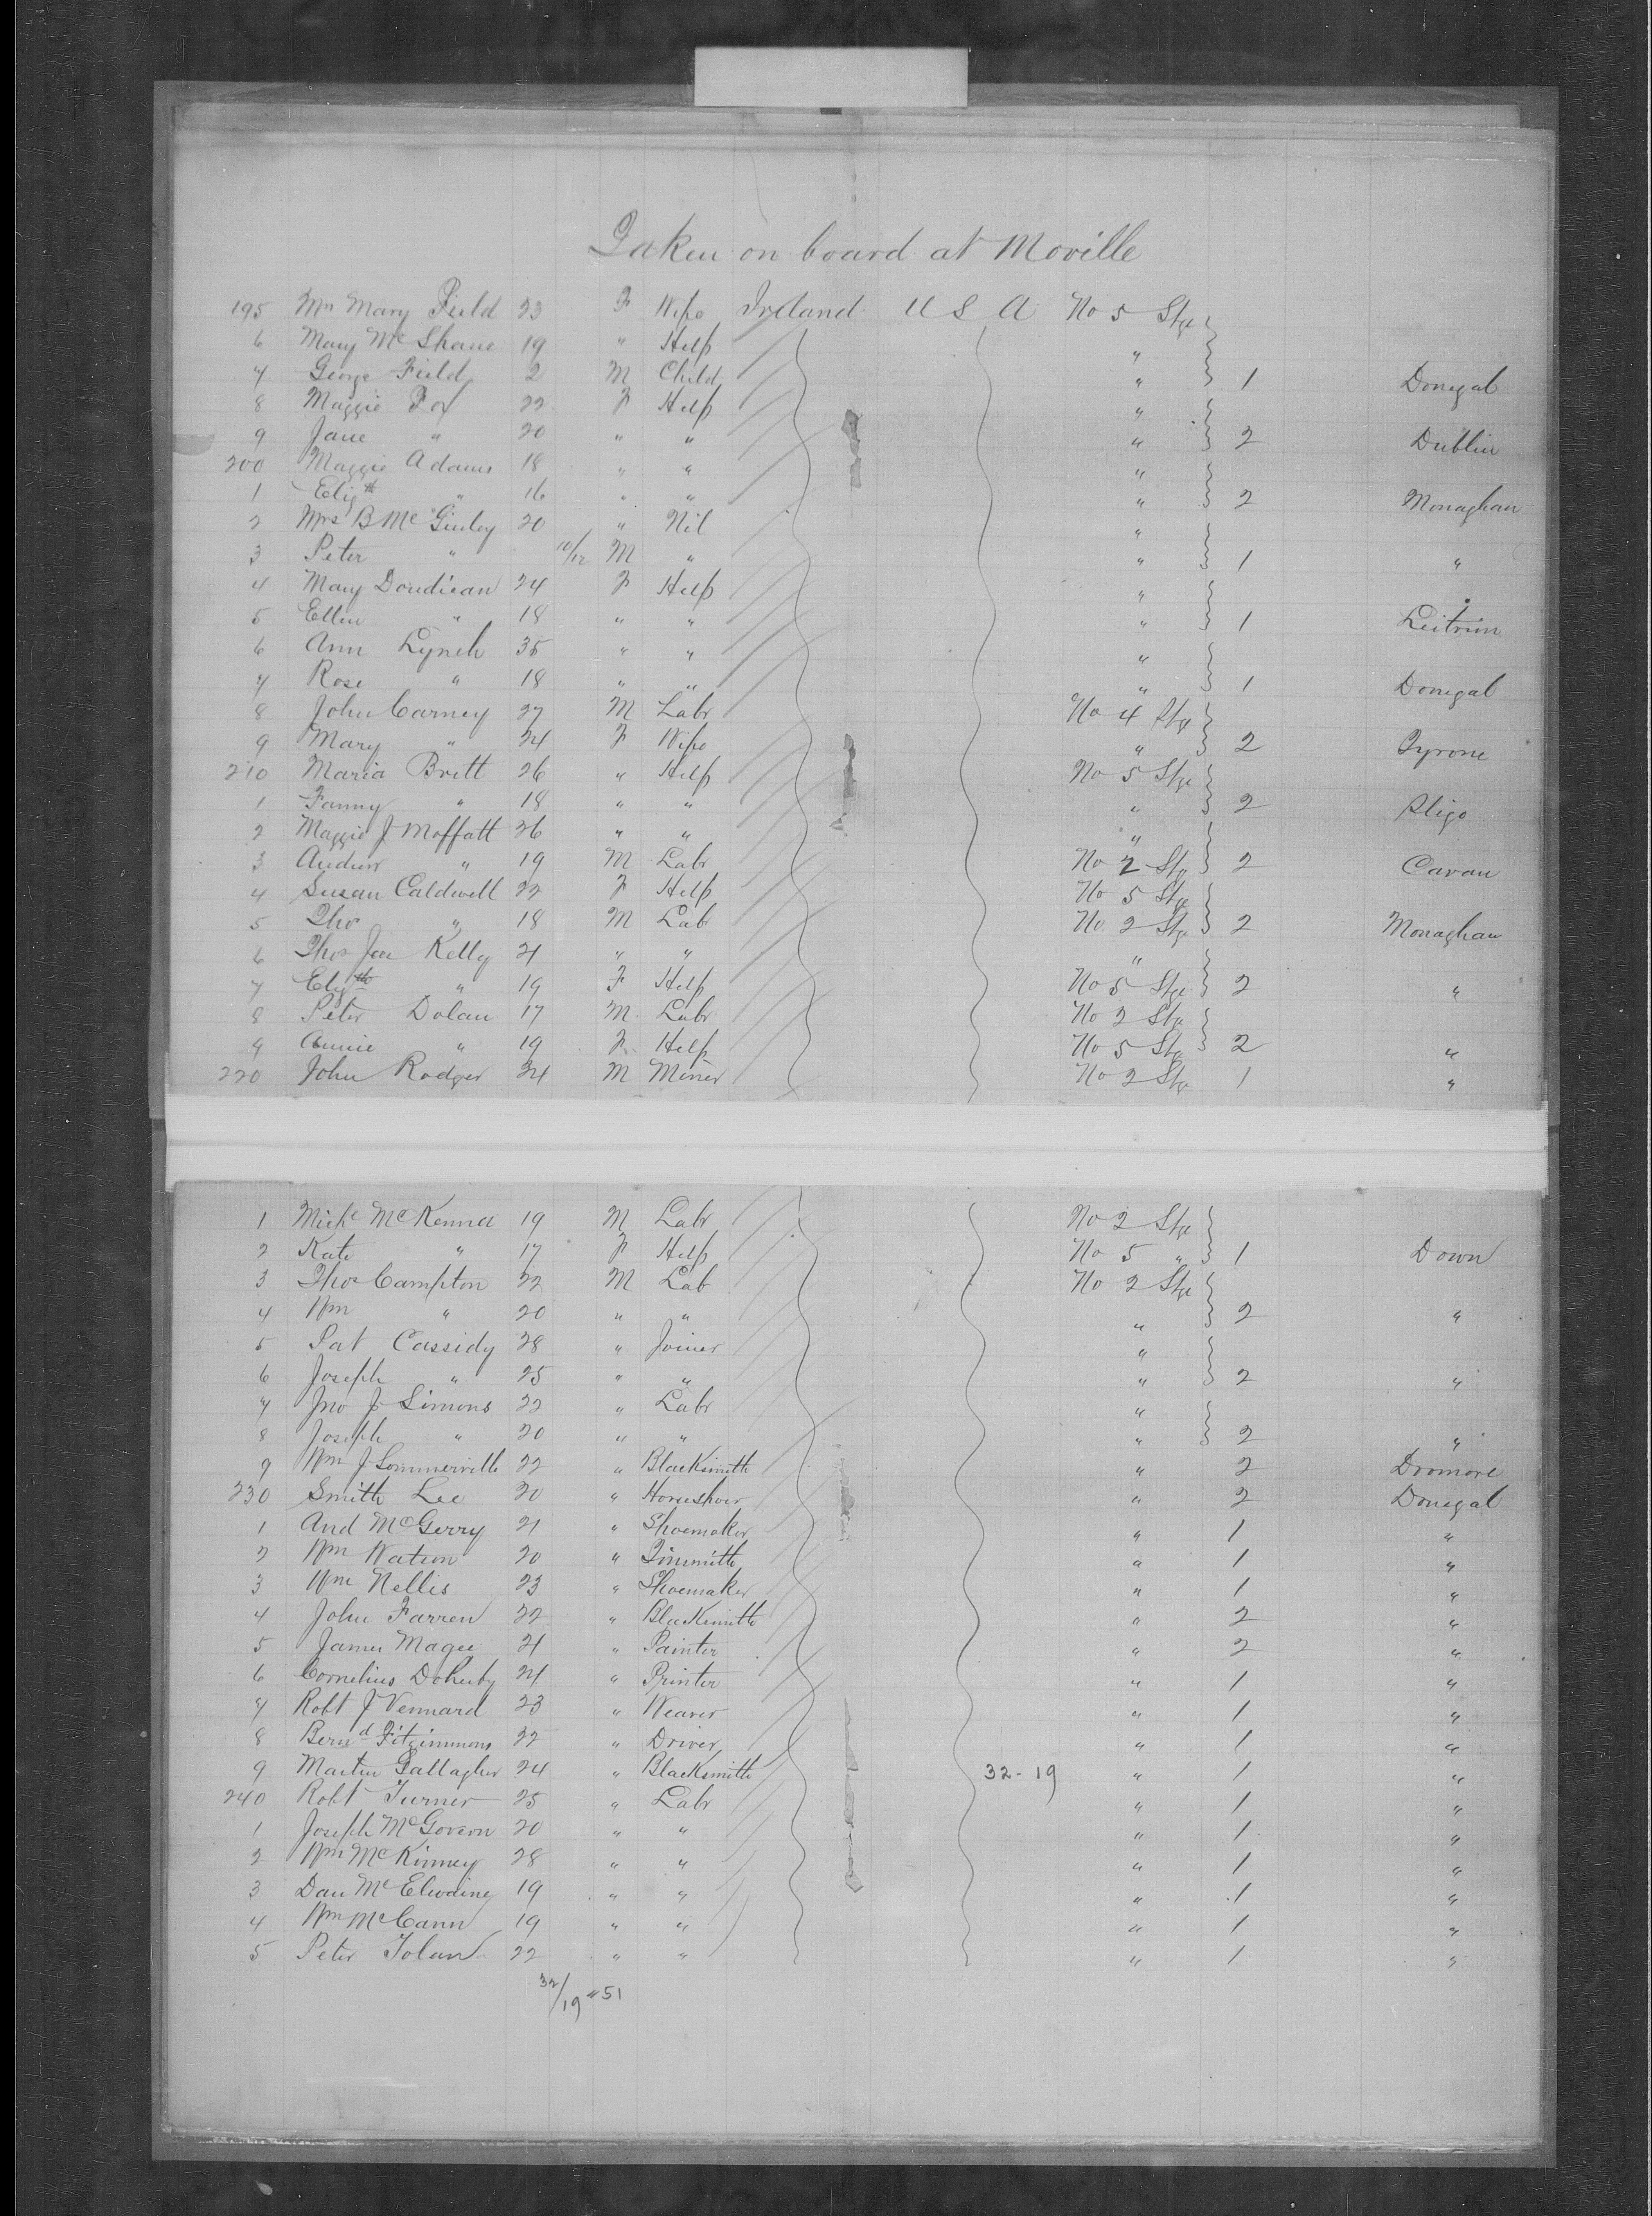 Taken on board at Moville
195 Mrs Mary Field 23 F Wife Ireland U S A No 5 Stge
6 Mary McShane 19 " Help "
7 George Field 2 M Child " 1 Donegal
8 Maggie Fox 22 F Help "
9 Jane " 20 " " " 2 Dublin
200 Maggie Adams 18 " " "
1 Elizth " 16 " " " 2 Monaghan
2 Mrs B McGinley 20 " Nil "
3 Peter " 10/12 M " " 1 "
4 Mary Doudican 24 F Help "
5 Ellen " 18 " " " 1 Leitrim
6 Ann Lynch 35 " " "
7 Rose " 18 " " " 1 Donegal
8 John Carney 27 M Labr No 4 Stge
9 Mary " 24 F Wife " 2 Tyrone
210 Maria Britt 26 " Help No 5 Stge
1 Fanny " 18 " " " 2 Sligo
2 Maggie J Moffatt 26 " " "
3 Andrew " 19 M Labr No 2 Stg 2 Cavan
4 Susan Caldwell 22 F Help No 5 Stge
5 Thos " 18 M Lab No 2 Stge 2 Monaghan
6 Thos Jas Kelly 21 " " "
7 Elizth " 19 F Help No 5 Stge 2 "
8 Peter Dolan 17 M Labr No 2 Stg
9 Annie " 19 F Help No 5 Stg 2 "
220 John Rodger 24 M Miner No 2 Stge 1 "
1 Michl McKenna 19 M Labr No 2 Stge
2 Kate " 17 F Help No 5 " 1 Down
3 Thos Campton 22 M Lab No 2 Stge
4 Wm " 20 " " " 2 "
5 Pat Cassidy 28 " Joiner "
6 Joseph " 25 " " " 2 "
7 Jno J Simons 22 " Labr "
8 Joseph " 20 " " " 2 "
9 Wm J Sommerville 22 " Blacksmith " 2 Dromore
230 Smith Lee 20 " Horseshoer " 2 Donegal
1 And McGerry 21 " Shoemaker " 1 "
2 Wm Watson 20 " Tinsmith " 1 "
3 Wm Nellis 23 " Shoemaker " 1 "
4 John Farren 22 " Blacksmith " 2 "
5 James Magee 21 " Painter " 2 "
6 Cornelius Doherty 24 " Printer " 1 "
7 Robt J Vennard 23 " Weaver " 1 "
8 Bernd Fitzimmons 22 " Driver " 1 "
9 Martin Gallagher 24 " Blacksmith 32-19 " 1 "
240 Robt Turner 25 " Labr " 1 "
1 Joseph McGovern 20 " " " 1 "
2 Wm McKinney 28 " " " 1 "
3 Dan McElwaine 19 " " " 1 "
4 Wm McCann 19 " " " 1 "
5 Peter Tolan 22 " " " 1 "
32/19 " 51